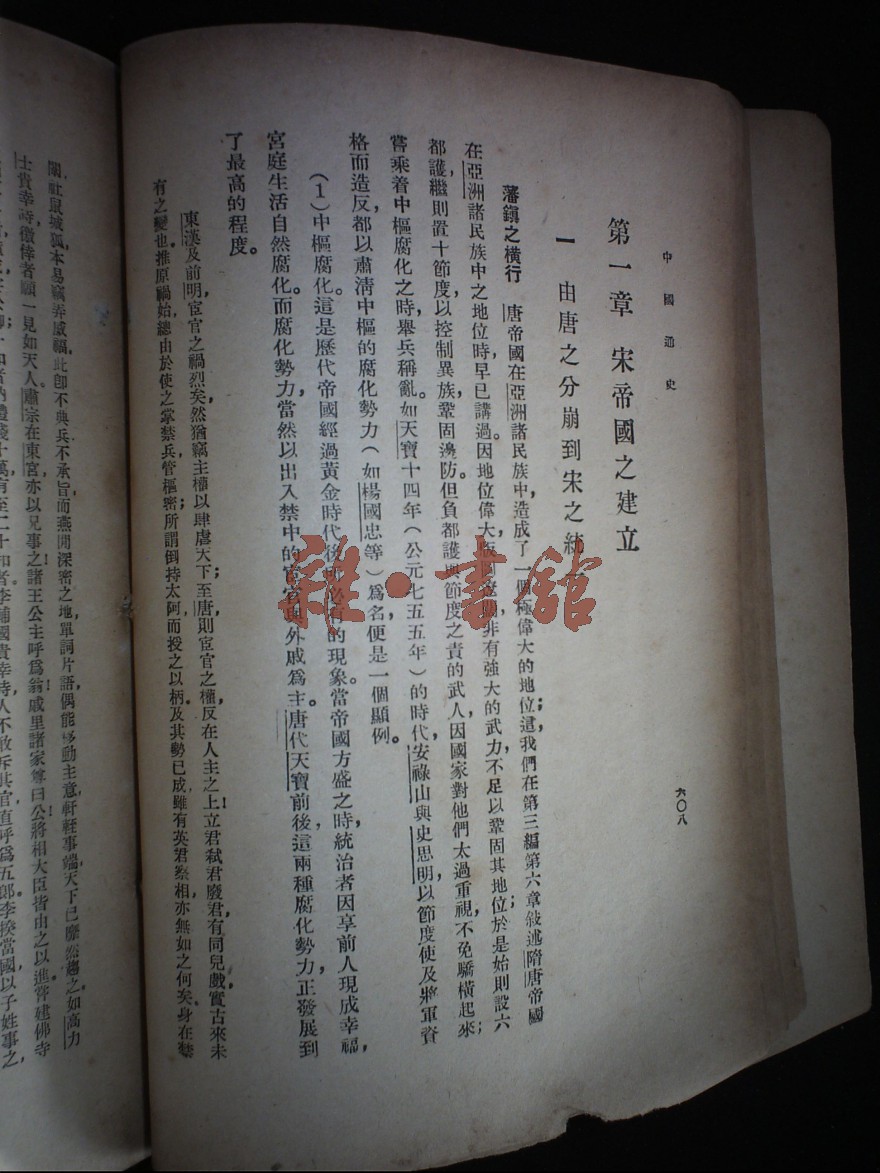 中國通史
六〇八
第一章 宋帝國之建立
一 由唐之分崩到宋之統
藩鎮之橫行 唐帝國在亞洲諸民族中，造成了一個極偉大的地位；這，我們在第三編第六章敍述隋唐帝國
在亞洲諸民族中之地位時，早已講過。因地位偉大，版圖遼闊，非有強大的武力，不足以鞏固其地位；於是始則設六
都護，繼則置十節度，以控制異族，鞏固邊防。但負都護與節度之責的武人，因國家對他們太過重視，不免驕橫起來；
嘗乘着中樞腐化之時，舉兵稱亂。如天寶十四年（公元七五五年）的時代，安祿山與史思明，以節度使及將軍資
格而造反，都以肅淸中樞的腐化勢力（如楊國忠等）爲名，便是一個顯例。
（1）中樞腐化。這是歷代帝國經過黃金時代後所必有的現象。當帝國方盛之時，統治者因享前人現成幸福，
宮庭生活自然腐化。而腐化勢力，當然以出入禁中的宦官與外戚爲主。唐代天寶前後，這兩種腐化勢力，正發展到
了最高的程度。
東漢及前明，宦官之禍烈矣，然猶竊主權以肆虐天下；至唐則宦官之權，反在人主之上，立君弒君廢君，有同兒戲，實古來未
有之變也。推原禍始，總由於使之掌禁兵，管樞密；所謂倒持太阿，而授之以柄。及其勢已成，雖有英君察相，亦無如之何矣。身在禁
闈，社鼠城狐，本易竊弄威福，此卽不典兵，不承旨，而燕閒深密之地，單詞片語，偶能移動主意，軒輊事端，天下已靡然趨之。如高力
士貴幸時，徼倖者願一見如天人；肅宗在東宮，亦以兄事之；諸王公主呼爲翁，戚里諸家尊曰公；將相大臣，皆由之以進；嘗建佛寺
李輔國貴幸時，人不敢斥其官，直呼爲五郞；李揆當國，以子姓事之，